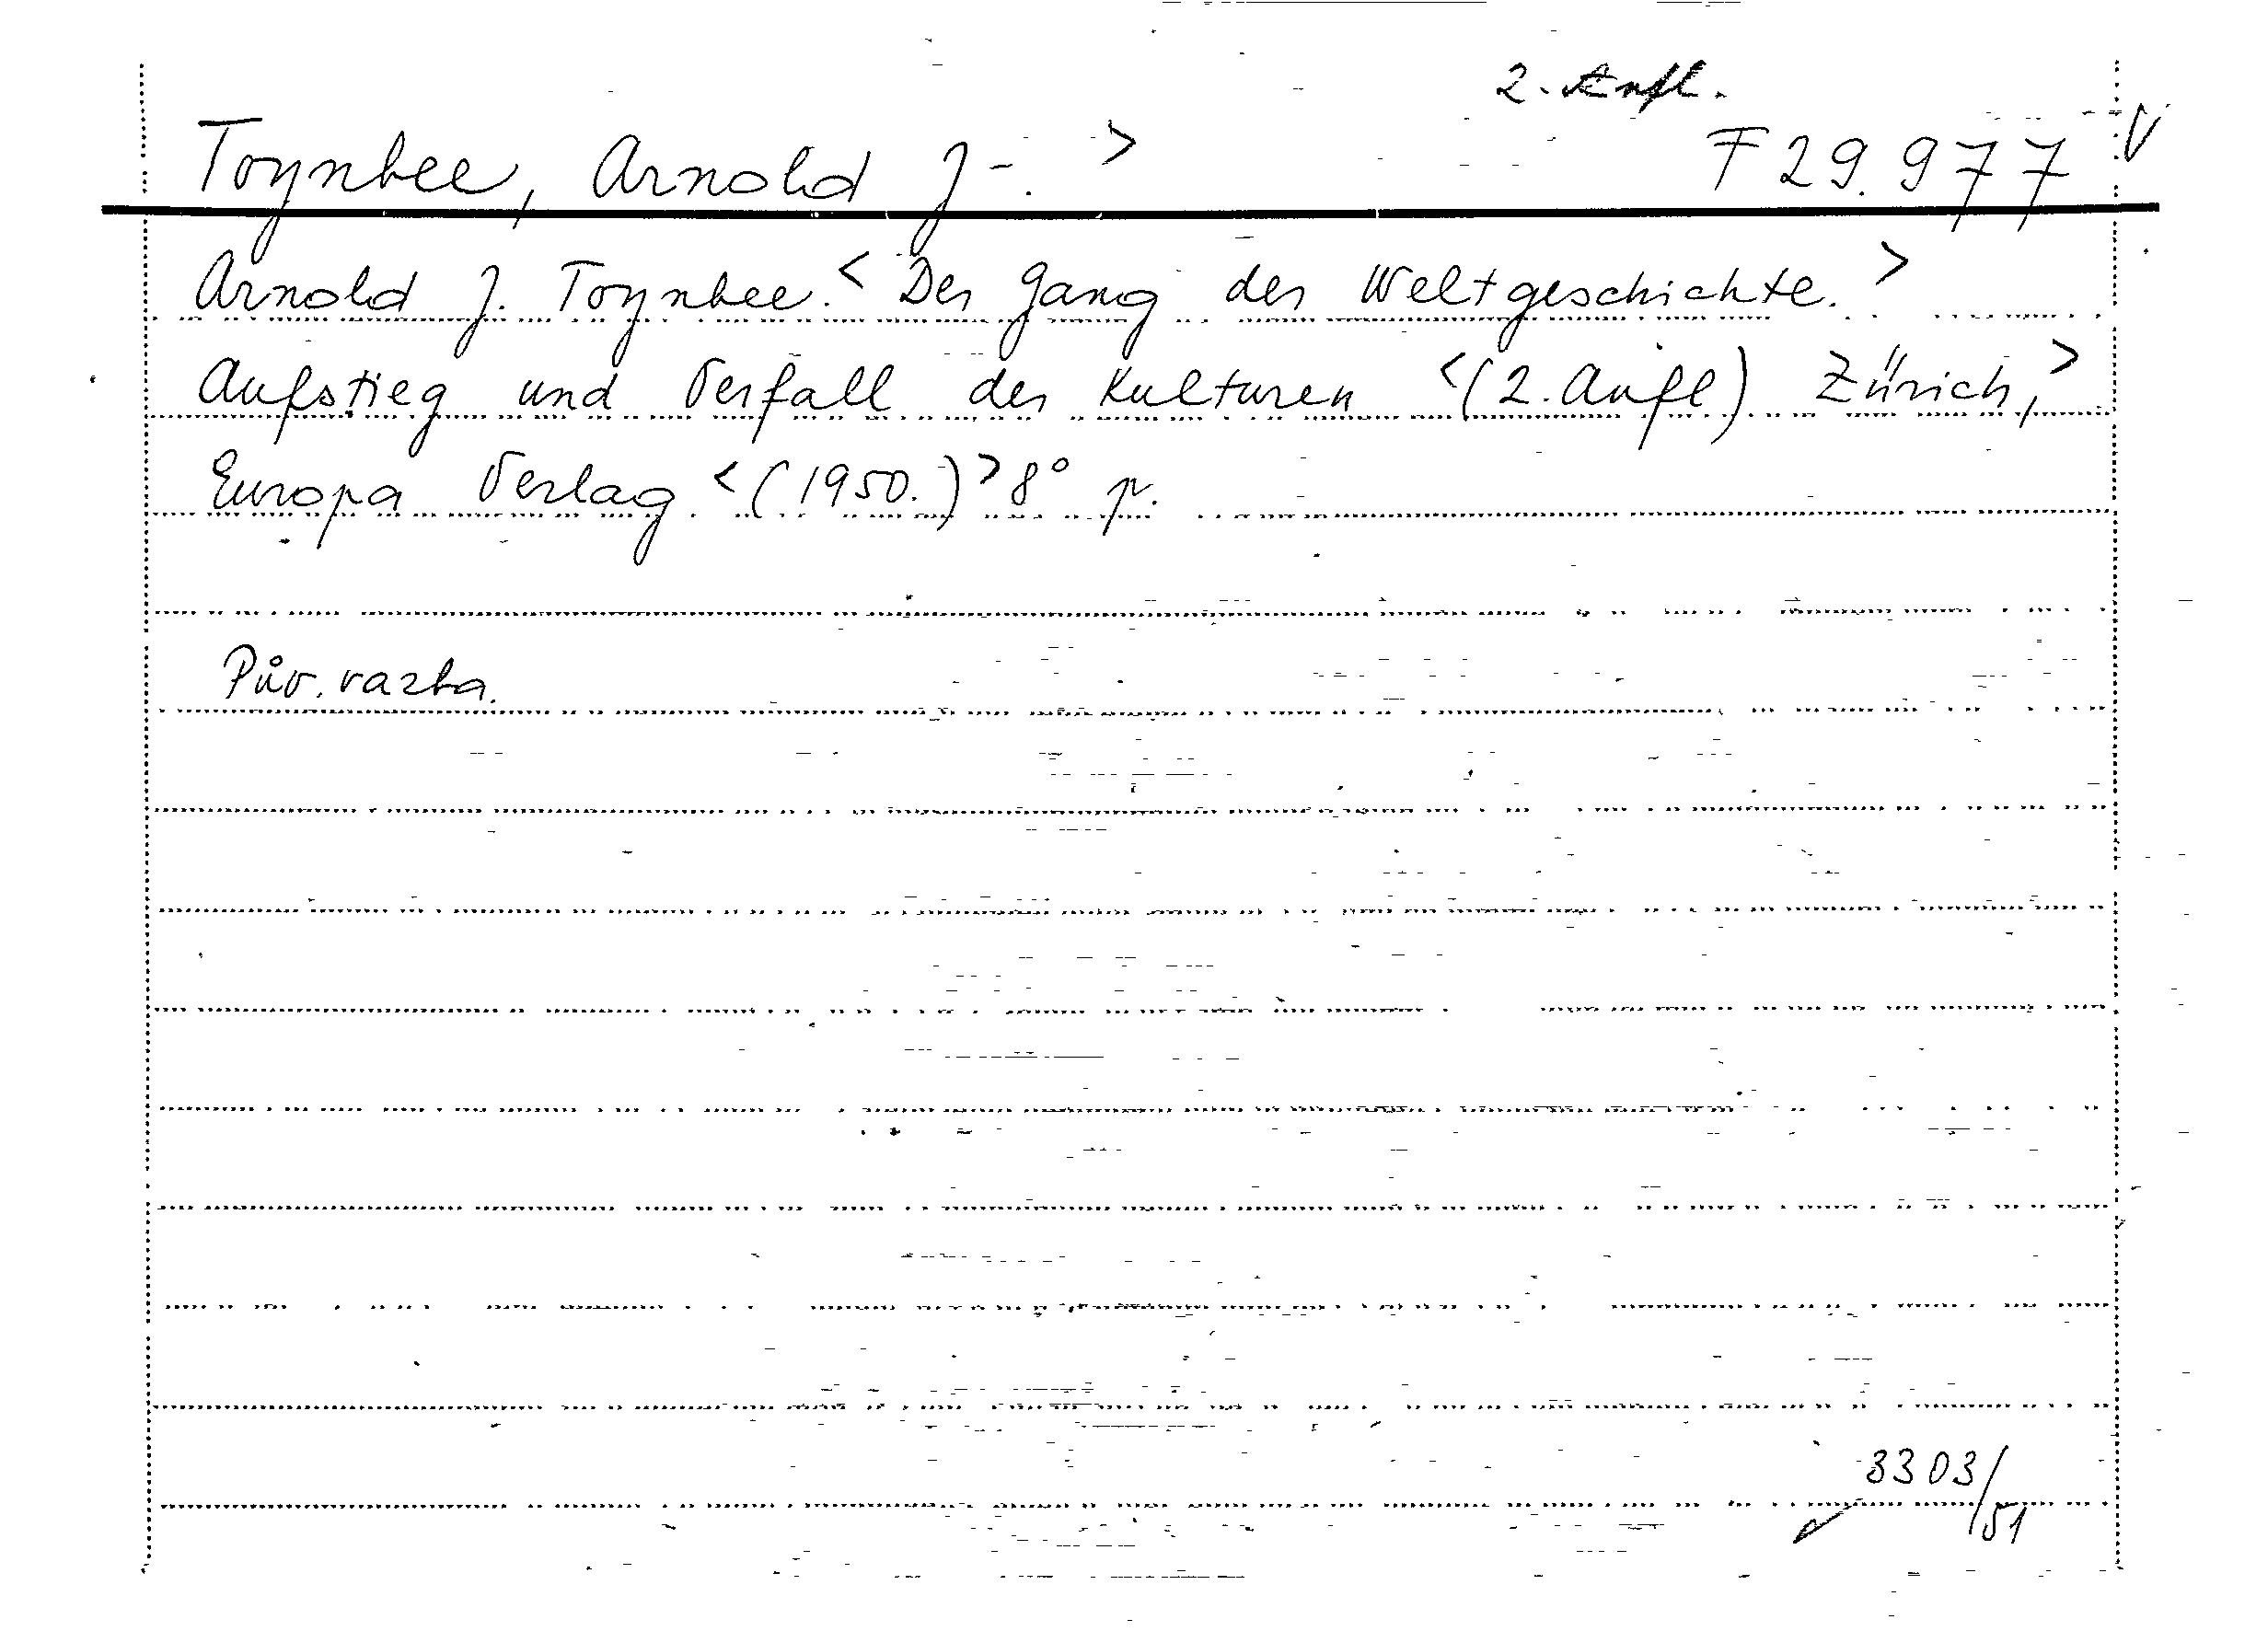 2. Aufl.
Toynbee, Arnold J-. > F 29.977 V
Arnold J. Toynbee. < Der Gang der Weltgeschichte. >
Aufstieg und Verfall der Kulturen < (2. Aufl) Zürich, >
Europa Verlag < (1950.) > 8° p.
Pův. vazba.
3303/51